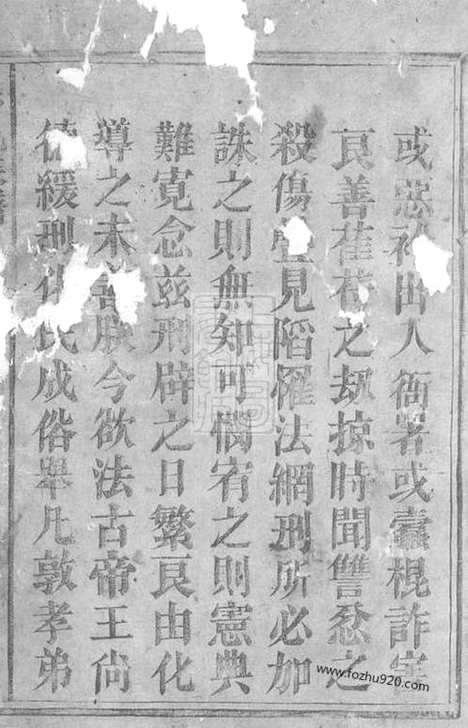 或惡衿出入衙署或蠹棍詐害
良善萑苻之刼掠時聞讐忿之
殺傷疊見陷罹法網刑所必加
誅之則無知可憫宥之則憲典
難寛念兹刑辟之日繁良由化
導之未善朕今欲法古帝王尚
德緩刑化民成俗舉凡敦孝弟
www.fozhu920.com